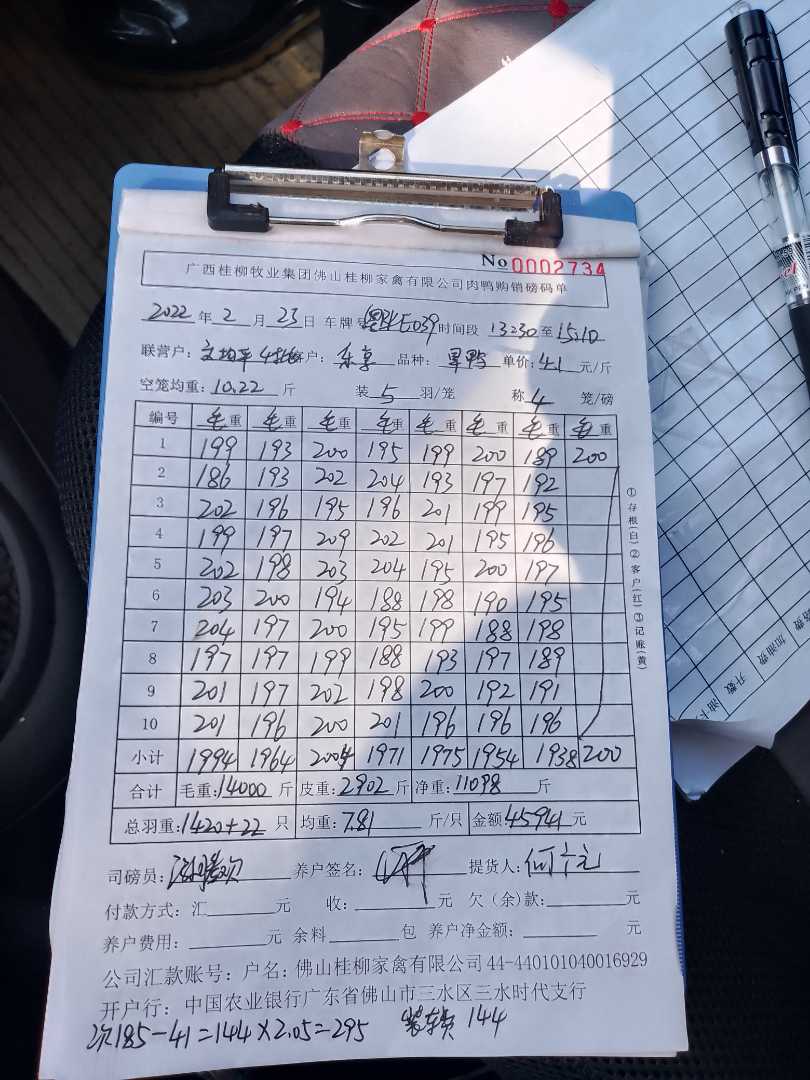 No 0002734
广西桂柳牧业集团佛山桂柳家禽有限公司肉鸭购销磅码单
2022 年 2 月 23 日 车牌号 E039 时间段 13230 至 15:10
联营户: 客户: 东享 品种: 单鸭 单价: 4.1 元/斤
空笼均重: 10.22 斤 装 5 羽/笼 称 4 笼/磅
编号 毛重 毛重 毛重 毛重 毛重 毛重 毛重 毛重
1 199 193 200 195 199 200 189 200
2 186 193 202 204 193 197 192
3 202 196 195 196 201 199 195
4 199 197 209 202 201 195 196
5 202 198 203 204 195 200 197
6 203 200 194 188 198 190 195
7 204 197 200 195 199 188 198
8 197 197 199 188 193 197 189
9 201 197 202 198 200 192 191
10 201 196 200 201 196 196 196
小计 1994 1964 2004 1971 1975 1954 1938 200
合计 毛重: 14000 斤 皮重: 2902 斤 净重: 11098 斤
总羽重: 1420+22 只 均重: 7.81 斤/只 金额: 45941 元
司磅员: 养户签名: 提货人:
付款方式: 汇 元 收: 元 欠(余)款: 元
养户费用: 元 余料 包 养户净金额: 元
公司汇款账号: 户名: 佛山桂柳家禽有限公司 44-440101040016929
开户行: 中国农业银行广东省佛山市三水区三水时代支行
次185-41=144×2.05=295 装车费 144
①存根(白)②客户(红)③记账(黄)
加油费
升数
油卡